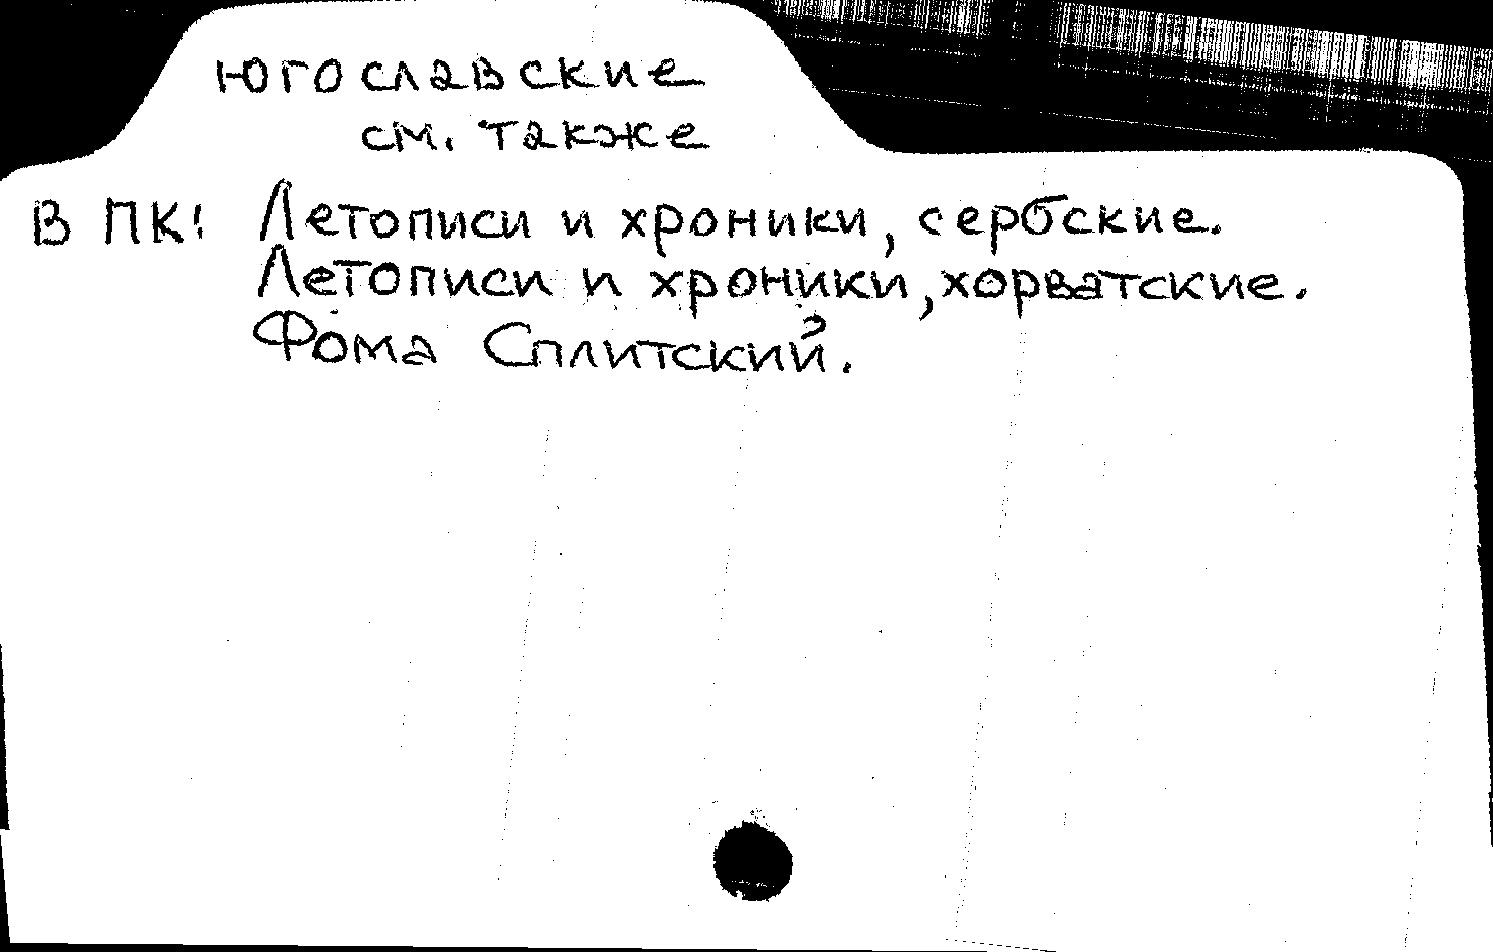 югославские
см. также
В ПК: Летописи и хроники, сербские.
Летописи и хроники, хорватские.
Фома Сплитский.